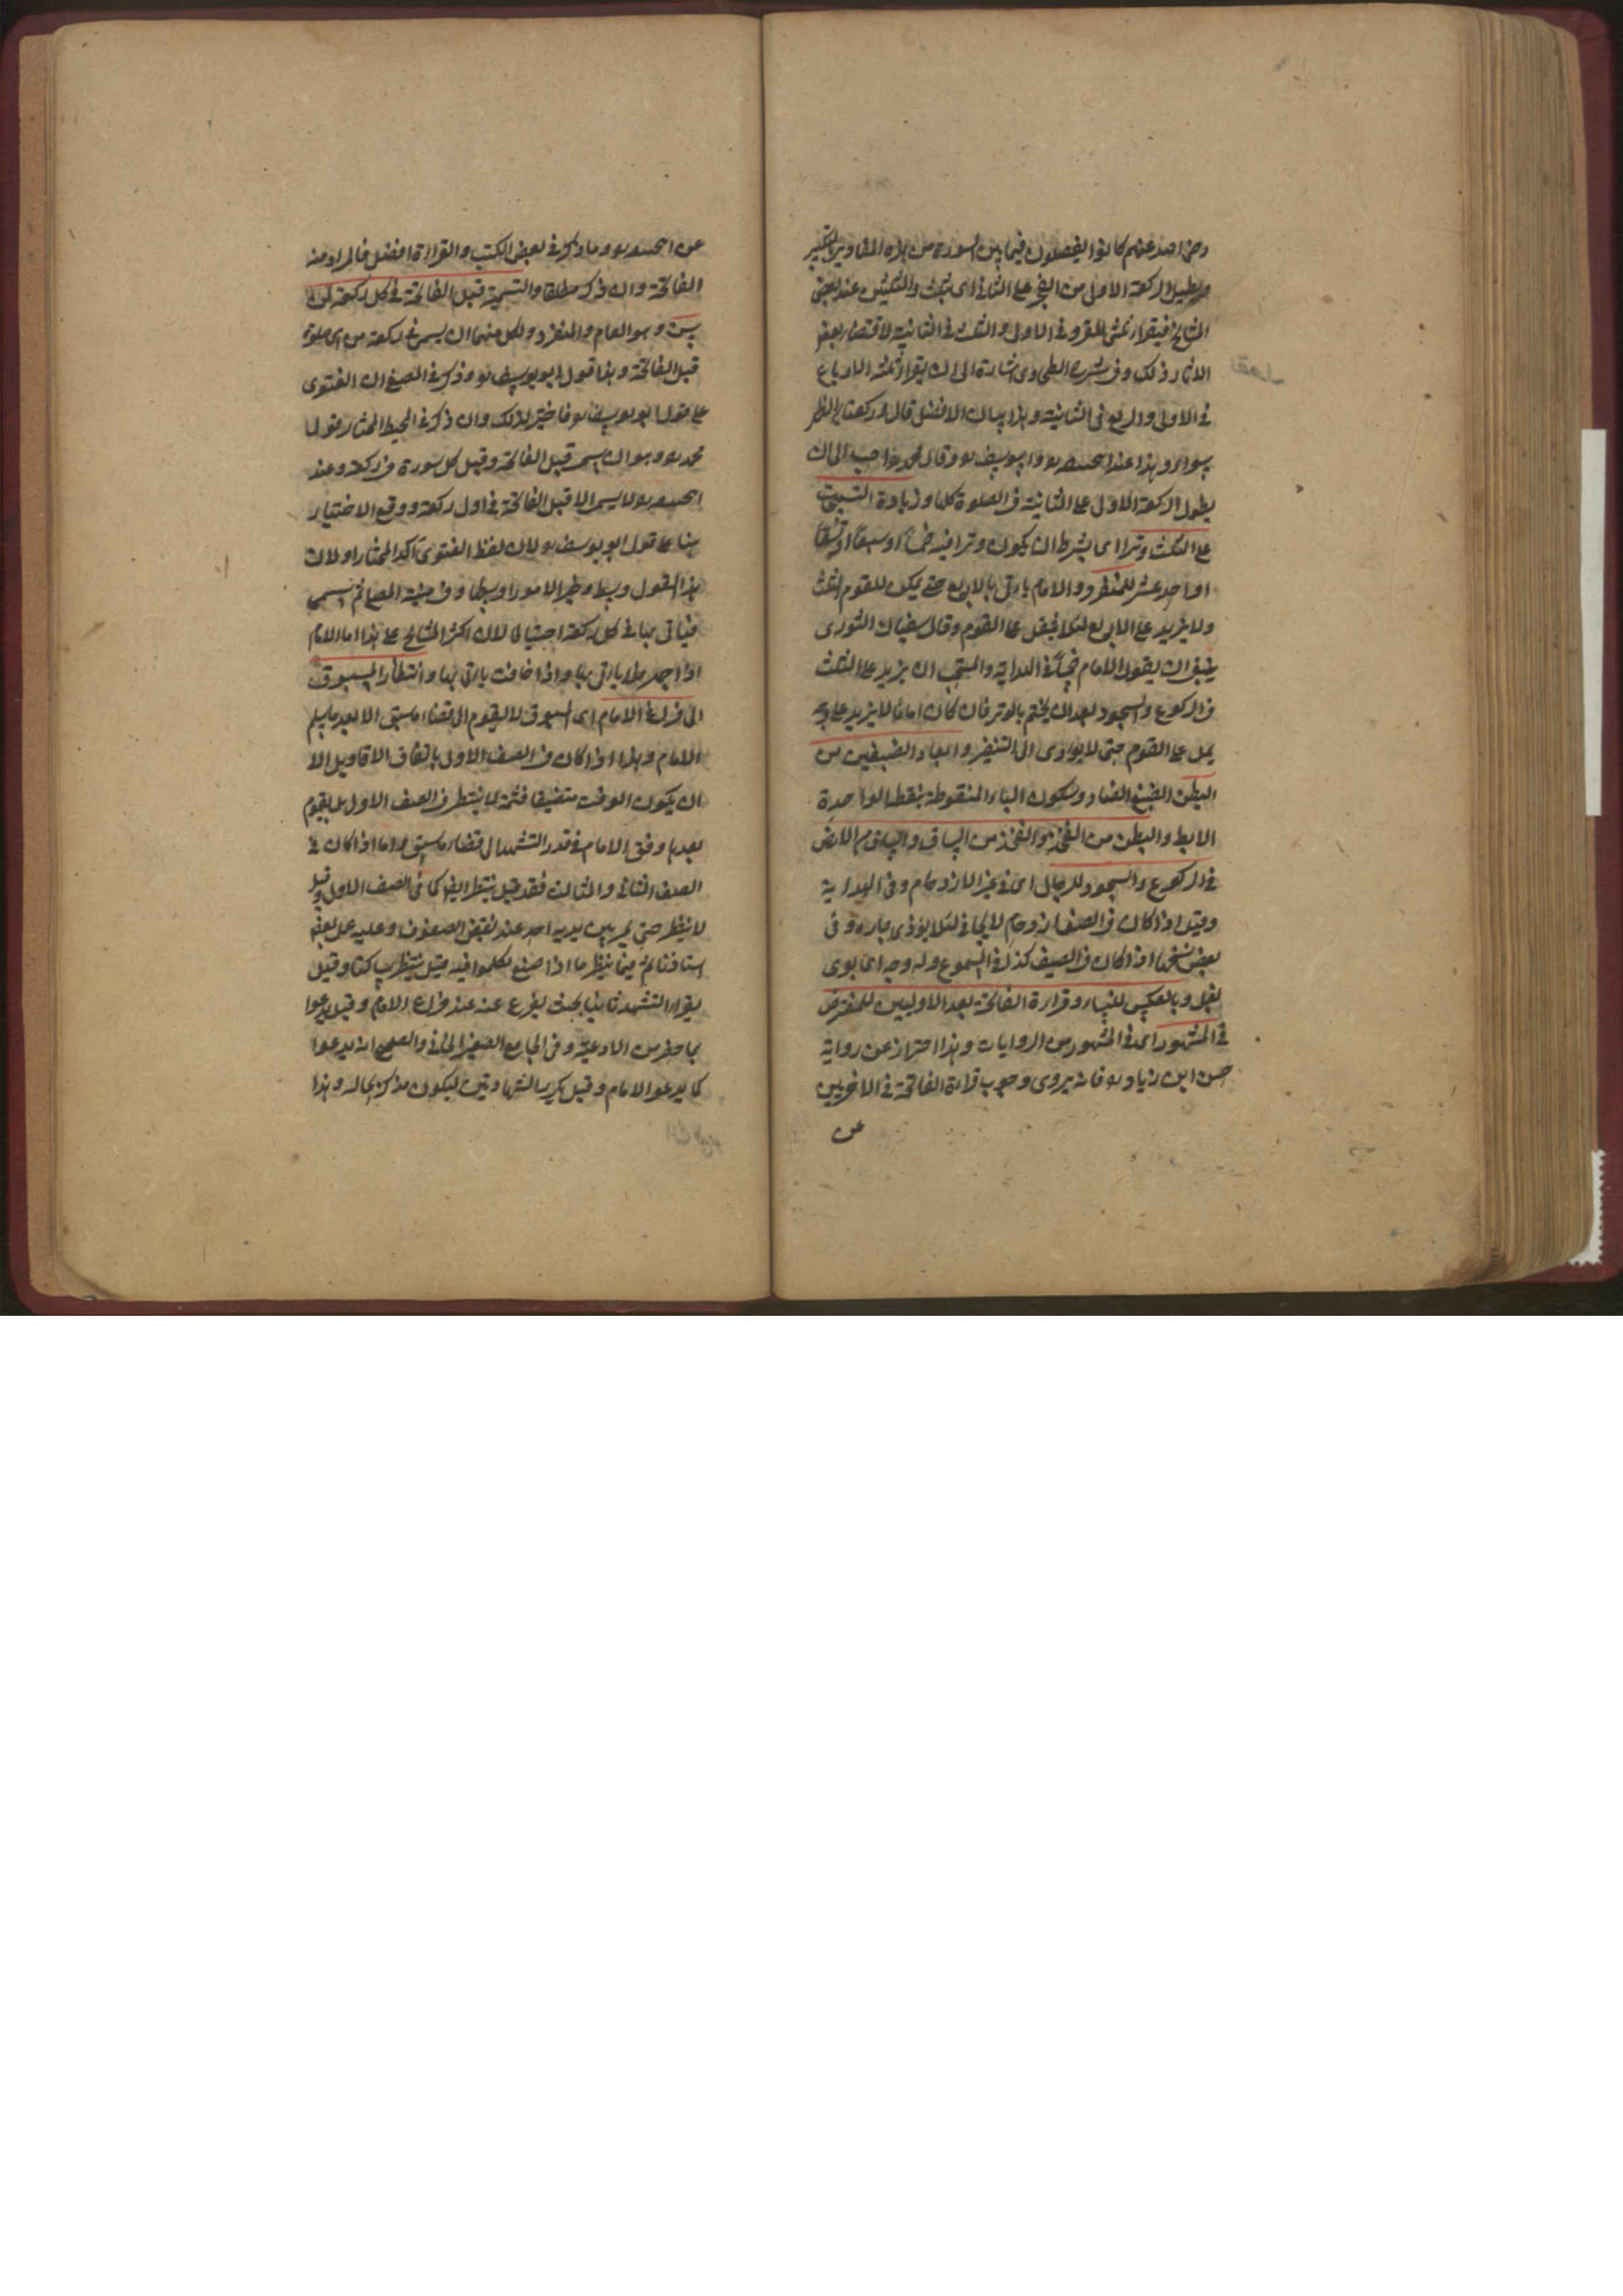 رضى الله عنهم كانوا يفصلون فيما بين السورة من هذه المقادير بالتكبير
وتطيل الركعة الاولى من الفجر على الثانى اى بثلث والثلثين عند بعض
المشايخ فيقراء ثلثى المقرو فى الاولى والثلث فى الثانية لاقتضاء بعض
الاثار ذلك وفى شرح الطحاوى اشارة الى ان يقراء ثلثة الارباع
فى الاولى والربع فى الثانية وهذا بيان الافضل قال وركعتا الظهر
سواء وهذا عند ابى حنيفة ره وابى يوسف ره وقال محمد ره احب الى ان
يطول الركعة الاولى على الثانية فى الصلوة كلها وزيادة التسبيحات
على الثلث وترا اى بشرط ان يكون وترا فيه خمساً او سبعاً او تسعاً
او احد عشر للمنفرد والامام ياتى بالاربع حتى يمكن للقوم الثلث
ولا يزيد على الاربع لئلا يثقل على القوم وقال سفيان الثورى
ينبغى ان يقول الامام خمساً فى الهداية والمستحب ان يزيد على الثلث
فى الركوع والسجود بعد ان يختم بالوتر فان كان اماما لا يزيد على وجه
يمل على القوم حتى لا يؤدى الى التنفير وابعاد الضبعين من
البطن الضبع الضاد وسكون الباء المنقوطة بنقطة الواحدة
الابط والبطن من الفخذ والفخذ من الساق والساق من الارض
فى الركوع والسجود للرجال اى فى غير الازدحام وفى الهداية
وقيل اذا كان فى الصف ازدحام لا يجافى لئلا يؤذى جاره وفى
بعض نسخها اذا كان فى الصيف كذلك المسموع وله وجه اى بوى
بغل وبالعكس للنساء وقراءة الفاتحة بعد الاوليين للمفترض
فى المشهور اى فى المشهور من الروايات وهذا احتراز عن رواية
حسن ابن زياد ره فانه يروى وجوب قراءة الفاتحة فى الاخريين
عن
عن ابى حنيفة ره وما ذكر فى بعض الكتب والقراءة افضل فالمراد منه
الفاتحة وان ذكر مطلقا والتسمية قبل الفاتحة فى كل ركعة لمن
يسن وهو الامام والمنفرد ولكل منهما ان يسمى فى ركعة من اى صلوة
قبل الفاتحة وهذا قول ابو يوسف ره وذكر فى الصيغ ان الفتوى
على قول ابو يوسف ره فاختير لذلك وان ذكر فى المحيط المختار قول
محمد ره وهو ان يسمى قبل الفاتحة وقبل كل سورة فى ركعة وعند
ابى حنيفة ره لا يسمى الا قبل الفاتحة فى اول ركعة ووقع الاختيار
هنا على قول ابو يوسف ره لان لفظ الفتوى آكد المختار او لان
هذا القول وسط وخير الامور اوسطها وفى منية المصلى ثم يسمى
فياتى بها فى كل ركعة احتياطا لان اكثر المشايخ على هذا اما الامام
اذا جهر فلا ياتى بها واذا خافت ياتى بها وانتظار المسبوق
الى فراغ الامام اى المسبوق لا يقوم الى قضاء ما سبق الا بعد ما يسلم
الامام وهذا اذا كان فى الصف الاول باتفاق الاقاويل الا
ان يكون الوقت متضيقا فثمة لا ينتظر فى الصف الاول بل يقوم
بعد ما وفق الامام فى قدر التشهد الى قضاء ما سبق واما اذا كان فى
الصف الثانى والثالث فقد قيل ينتظر ايضا كما فى الصف الاول وقيل
لا ينتظر حتى يمر بين يديه احد عند نقض الصفوف وعليه عمل بعض
استاذنا ثم فيما ينتظر ما اذا صنع تكلموا فيه قيل ينتظر ساكتا وقيل
يقرا التشهد ثانيا بحيث يفرغ عنه عند فراغ الامام وقيل يدعوا
بما حفر من الادعية وفى الجامع الصغير الخانى والصحيح انه يدعوا
كما يدعوا الامام وقيل يكرر الشهادتين ليكون مذكرا بحاله وهذا